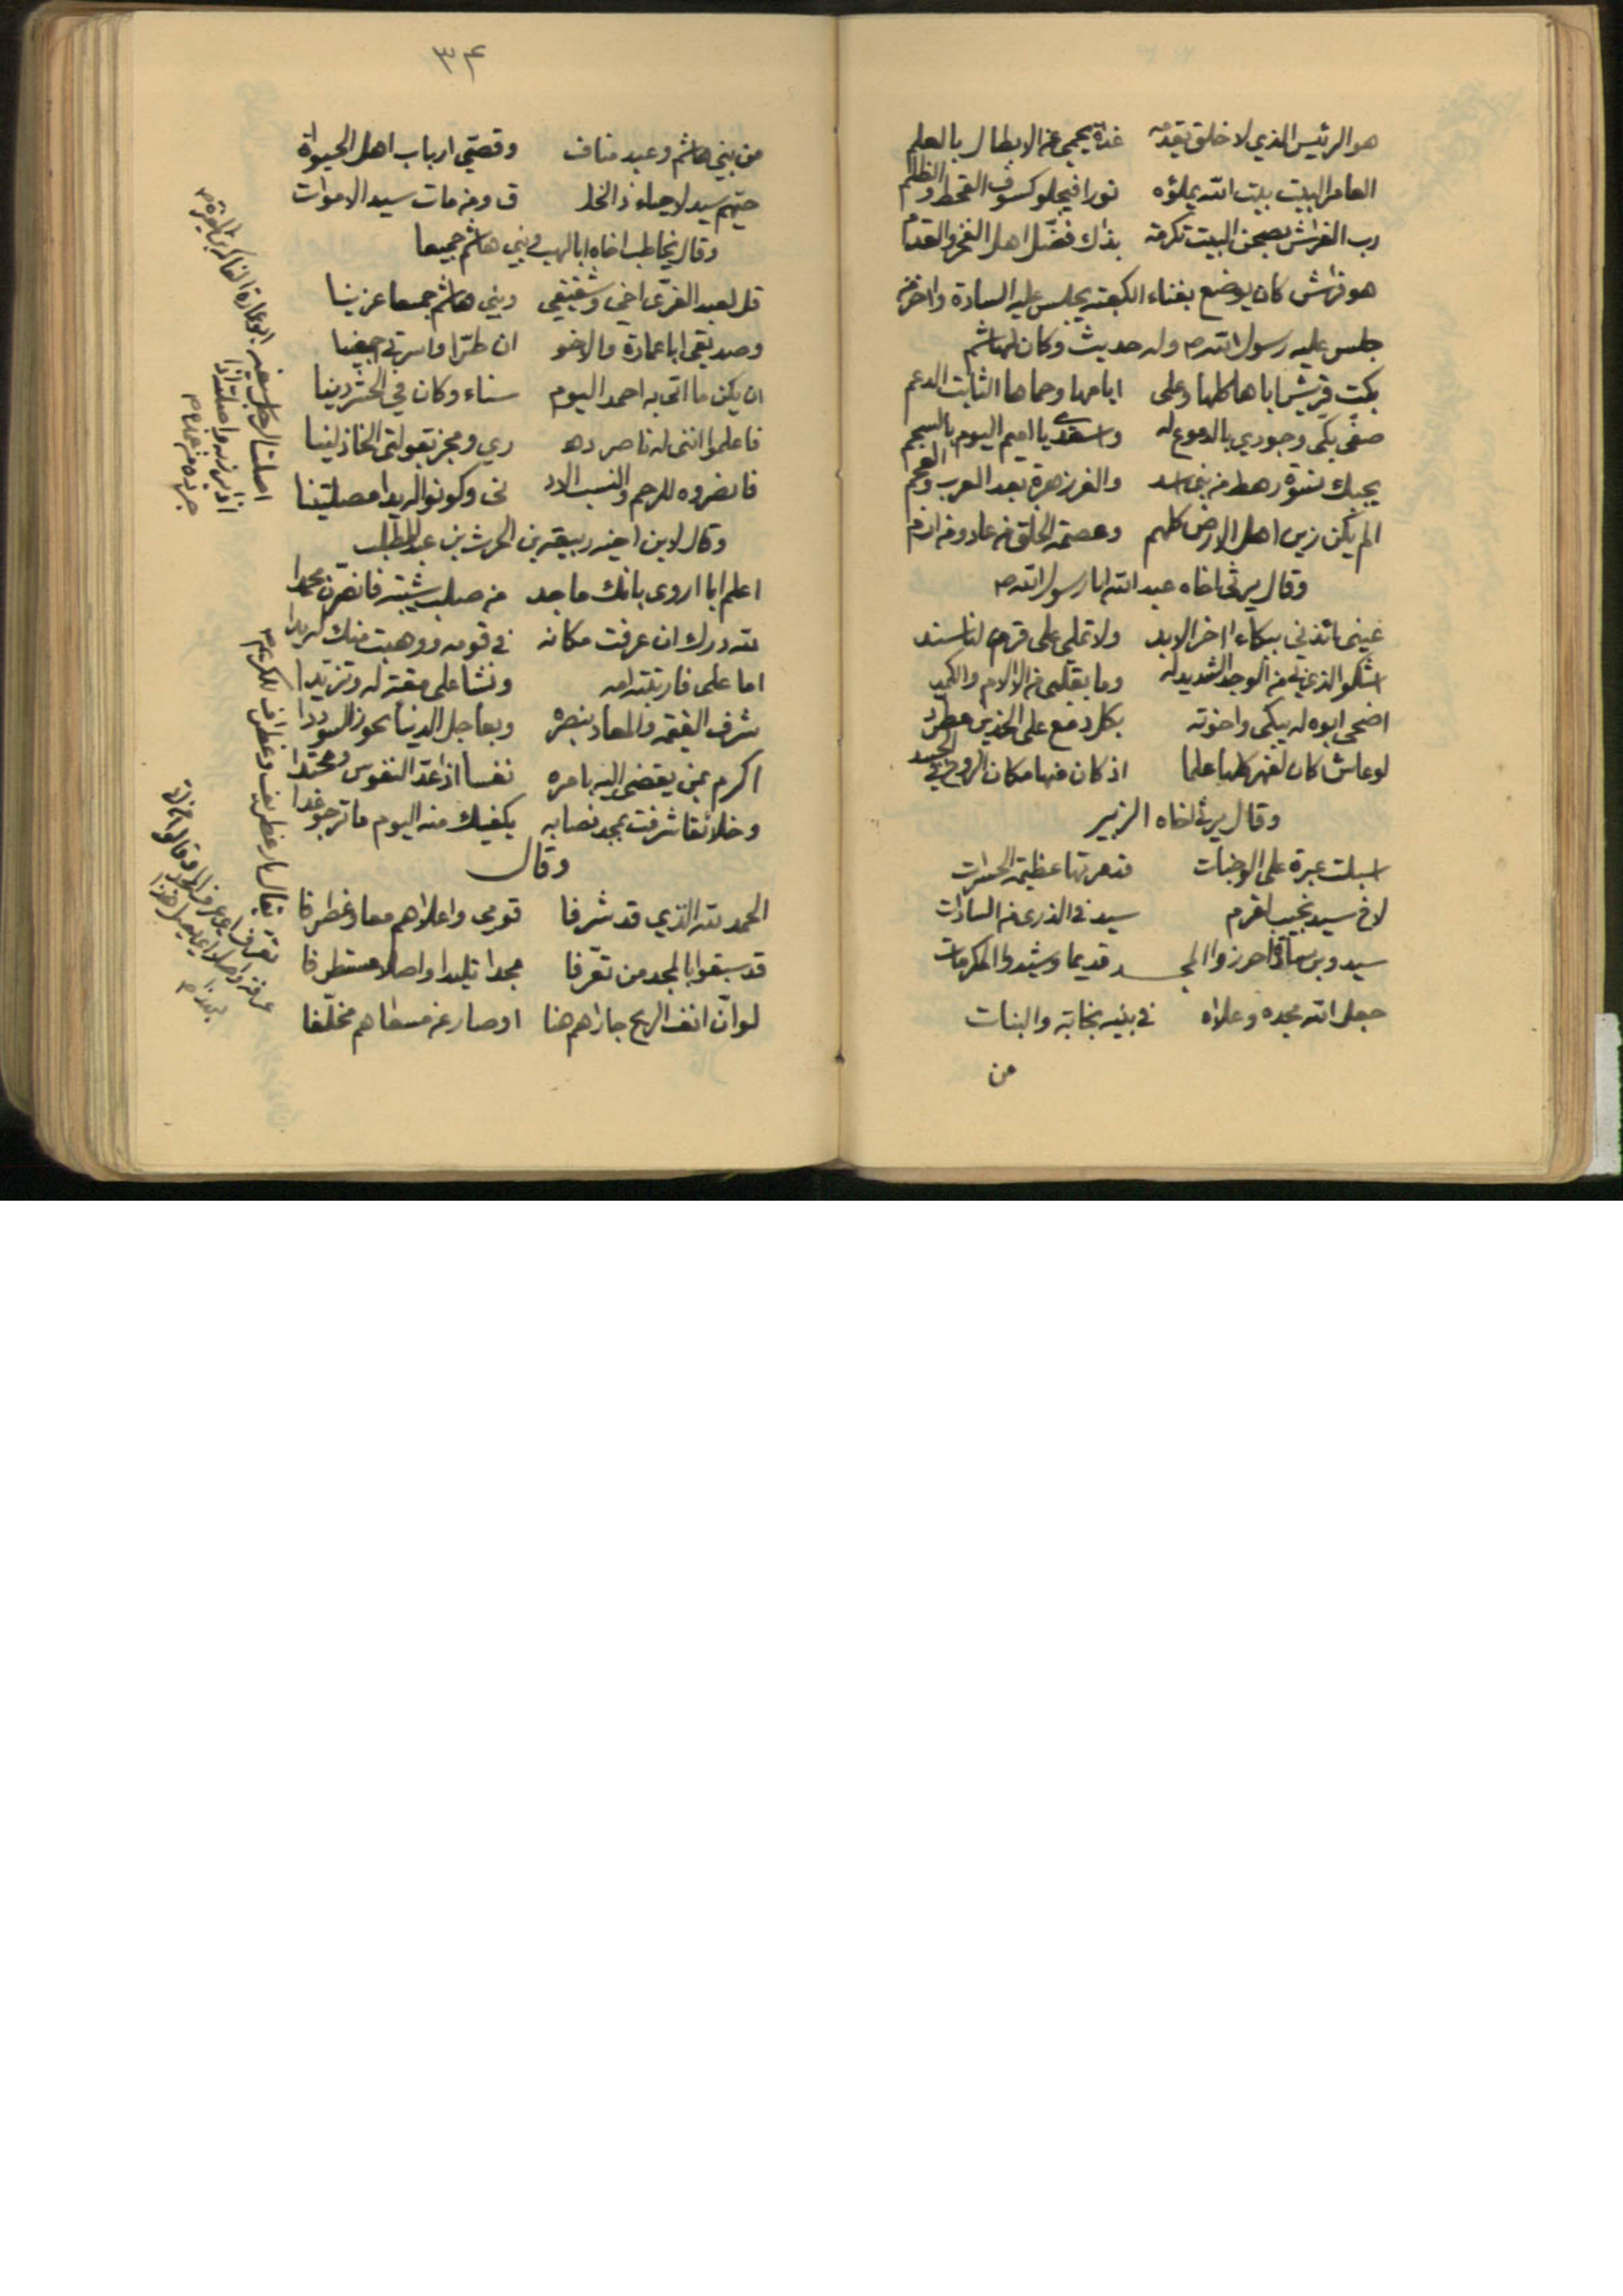 هو الرئيس الذي لا خلق يقدمه غداة يحمي عن الابطال بالعلم
العامر البيت بيت الله يملؤه نورا فيجلو كسوف القحط والظلم
رب الفراش بصحن البيت تكرمة بذاك فضل اهل الفخر والقدم
هو فراش كان يوضع بفناء الكعبة يجلس عليه السادة واخر من
جلس عليه رسول الله ص وله حديث وكان لهاشم
بكت قريش اباها كلها وعلى امامها وحماها الثابت الدعم
صفي بكي وجودي بالدموع له واسعدي يا اميم اليوم بالسجم
يجبك نسوة رهط من بني اسد والغر زهرة بعد العرب والعجم
الم يكن زين اهل الارض كلهم وعصمة الخلق من عاد ومن ارم
وقال يرثي اخاه عبد الله ابا رسول الله ص
عيني ائذني ببكاء اخر الابد ولا تملي على قرم لنا سند
اشكو الذي بي من الوجد الشديد له وما بقلبي من الالام والكمد
اضحى ابوه له يبكي واخوته بكل دمع على الخدين مطرد
لو عاش كان لفهر كلها علما اذ كان منها مكان الروح في الجسد
وقال يرثي اخاه الزبير
اسبلت عبرة على الوجنات قد مرتها عظيمة الحسرات
لاخ سيد نجيب لقرم سيد في الذرى من السادات
سيد وبن سادة احرزوا المجد قديما وشيدوا المكرمات
جعل الله مجده وعلاه في بنيه نجابة والبنات
من
٣٤
من بني هاشم وعبد مناف وقصي ارباب اهل الحيوة
حيهم سيد لاحياء ذا الخلـ ـق ومن مات سيد الاموات
وقال يخاطب اخاه ابا لهب وبني هاشم جميعا
قل لعبد العزى اخي وشقيقي وبني هاشم جميعا عزينا
وصديقي ابا عمارة والاخو ان طرا واسرتي اجمعينا
ان يكن ما اتى به احمد اليوم سناء وكان في الحشر دينا
فاعلموا انني له ناصر دهـ ـري ومجز بقولتي الخاذلينا
فانصروه للرحم والنسب الاد نى وكونوا له يدا مصلتينا
وقال لابن اخيه ربيعة بن الحرث بن عبد المطلب
اعلم ابا اروى بانك ماجد من صلب شيبة فانصرن محمدا
لله درك ان عرفت مكانه في قومه ووهبت منك له يدا
اما علي فاربته امه ونشا على مقة له وتزيدا
شرف القيمة والمعاد بنصره وبعاجل الدنيا يحوز السوددا
اكرم بمن يقضى اليه بامره نفسا اذا عد النفوس ومحتدا
وخلائقا شرفت بمجد نصابه يكفيك منه اليوم ما ترجو غدا
وقال
الحمد لله الذي قد شرفا قومي واعلاهم معا وغطرفا
قد سبقوا بالمجد من تعرفا مجدا تليدا واصلا مستطرفا
لو ان انف الريح جاراهم هفا او صار عن مسعاهم مخلفا